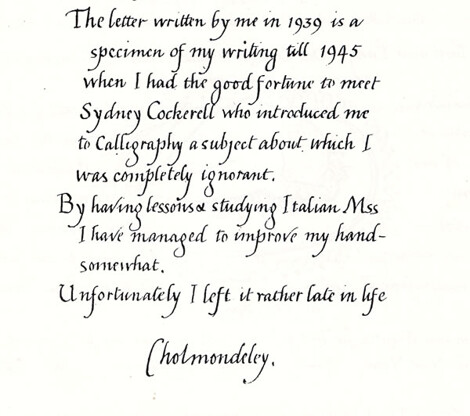 The letter written by me in 1939 is a
specimen of my writing till 1945
when I had the good fortune to meet
Sydney Cockerell who introduced me
to Calligraphy a subject about which I
was completely ignorant.
By having lessons & studying Italian Mss
I have managed to improve my hand-
somewhat.
Unfortunately I left it rather late in life
Cholmondeley.